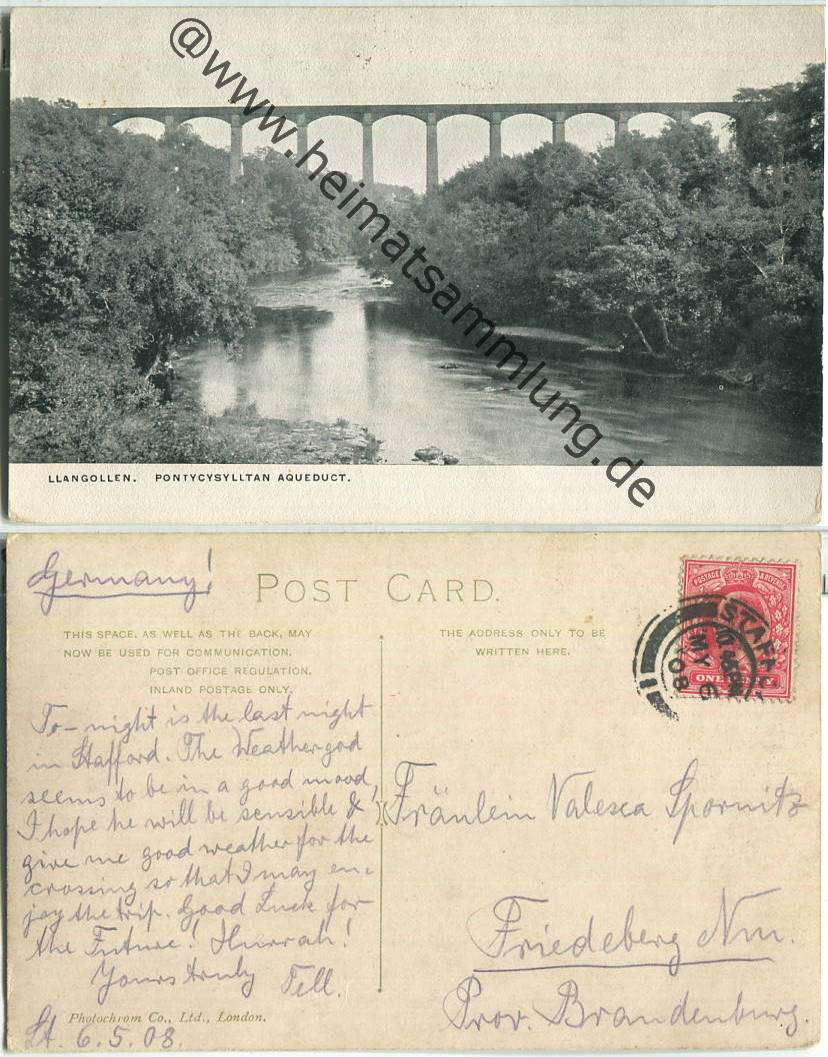 @www.heimatsammlung.de
LLANGOLLEN. PONTYCYSYLLTAN AQUEDUCT.
Germany!
POST CARD.
THIS SPACE, AS WELL AS THE BACK, MAY
NOW BE USED FOR COMMUNICATION.
POST OFFICE REGULATION.
INLAND POSTAGE ONLY.
THE ADDRESS ONLY TO BE
WRITTEN HERE.
POSTAGE & REVENUE
ONE PENNY
MY 6
08
To-night is the last night
in Stafford. The Weathergod
seems to be in a good mood,
I hope he will be sensible &
give me good weather for the
crossing so that I may en-
joy the trip. Good Luck for
the Future! Hurrah!
Yours truly Tell.
Fräulein Valesca Spornitz
Friedeberg Nm.
Prov. Brandenburg.
Photochrom Co., Ltd., London.
St. 6.5.08.